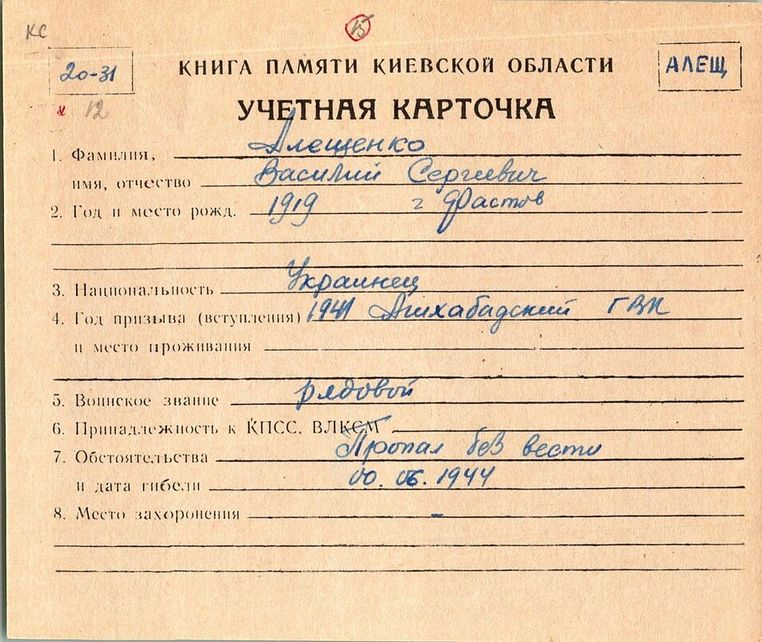 КС
15
20-31
КНИГА ПАМЯТИ КИЕВСКОЙ ОБЛАСТИ
АЛЕЩ
х 12
УЧЕТНАЯ КАРТОЧКА
1. Фамилия, Алещенко
имя, отчество Василий Сергеевич
2. Год и место рожд. 1919 г Фастов
3. Национальность Украинец
4. Год призыва (вступления) 1941 Ашхабадский ГВК
и место проживания
5. Воинское звание рядовой
6. Принадлежность к КПСС, ВЛКСМ
7. Обстоятельства Пропал без вести
и дата гибели 00.06.1944
8. Место захоронения –